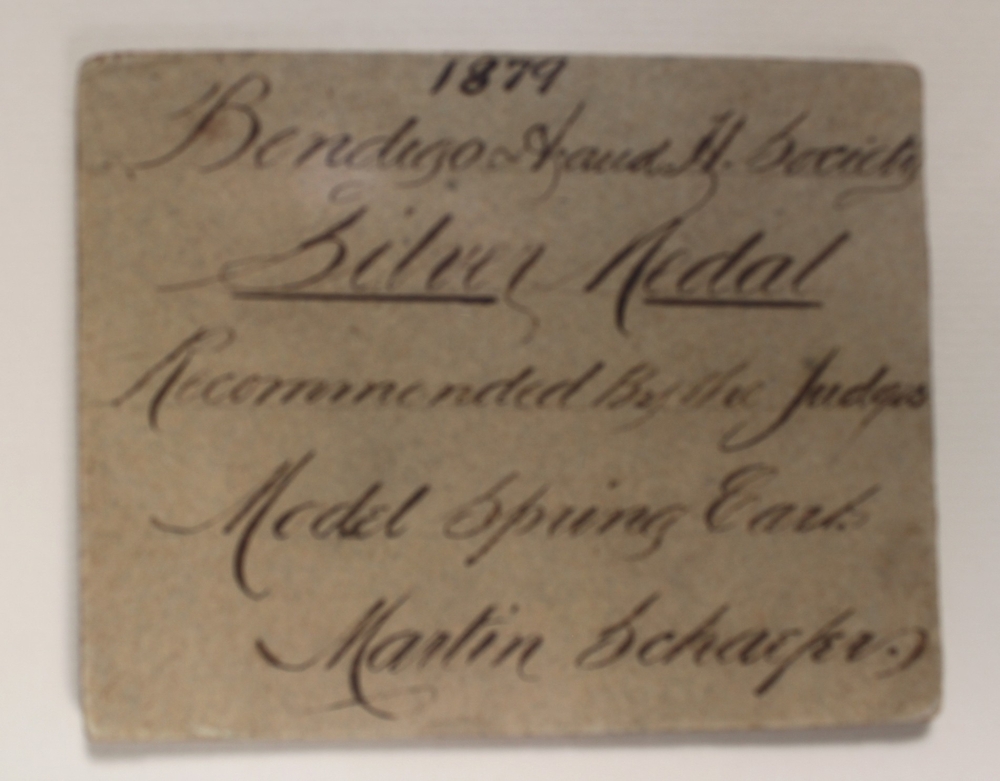 1879
Bendigo A and H. Society
Silver Medal
Recommended By the Judges
Model Spring Cart
Martin Schaefer.